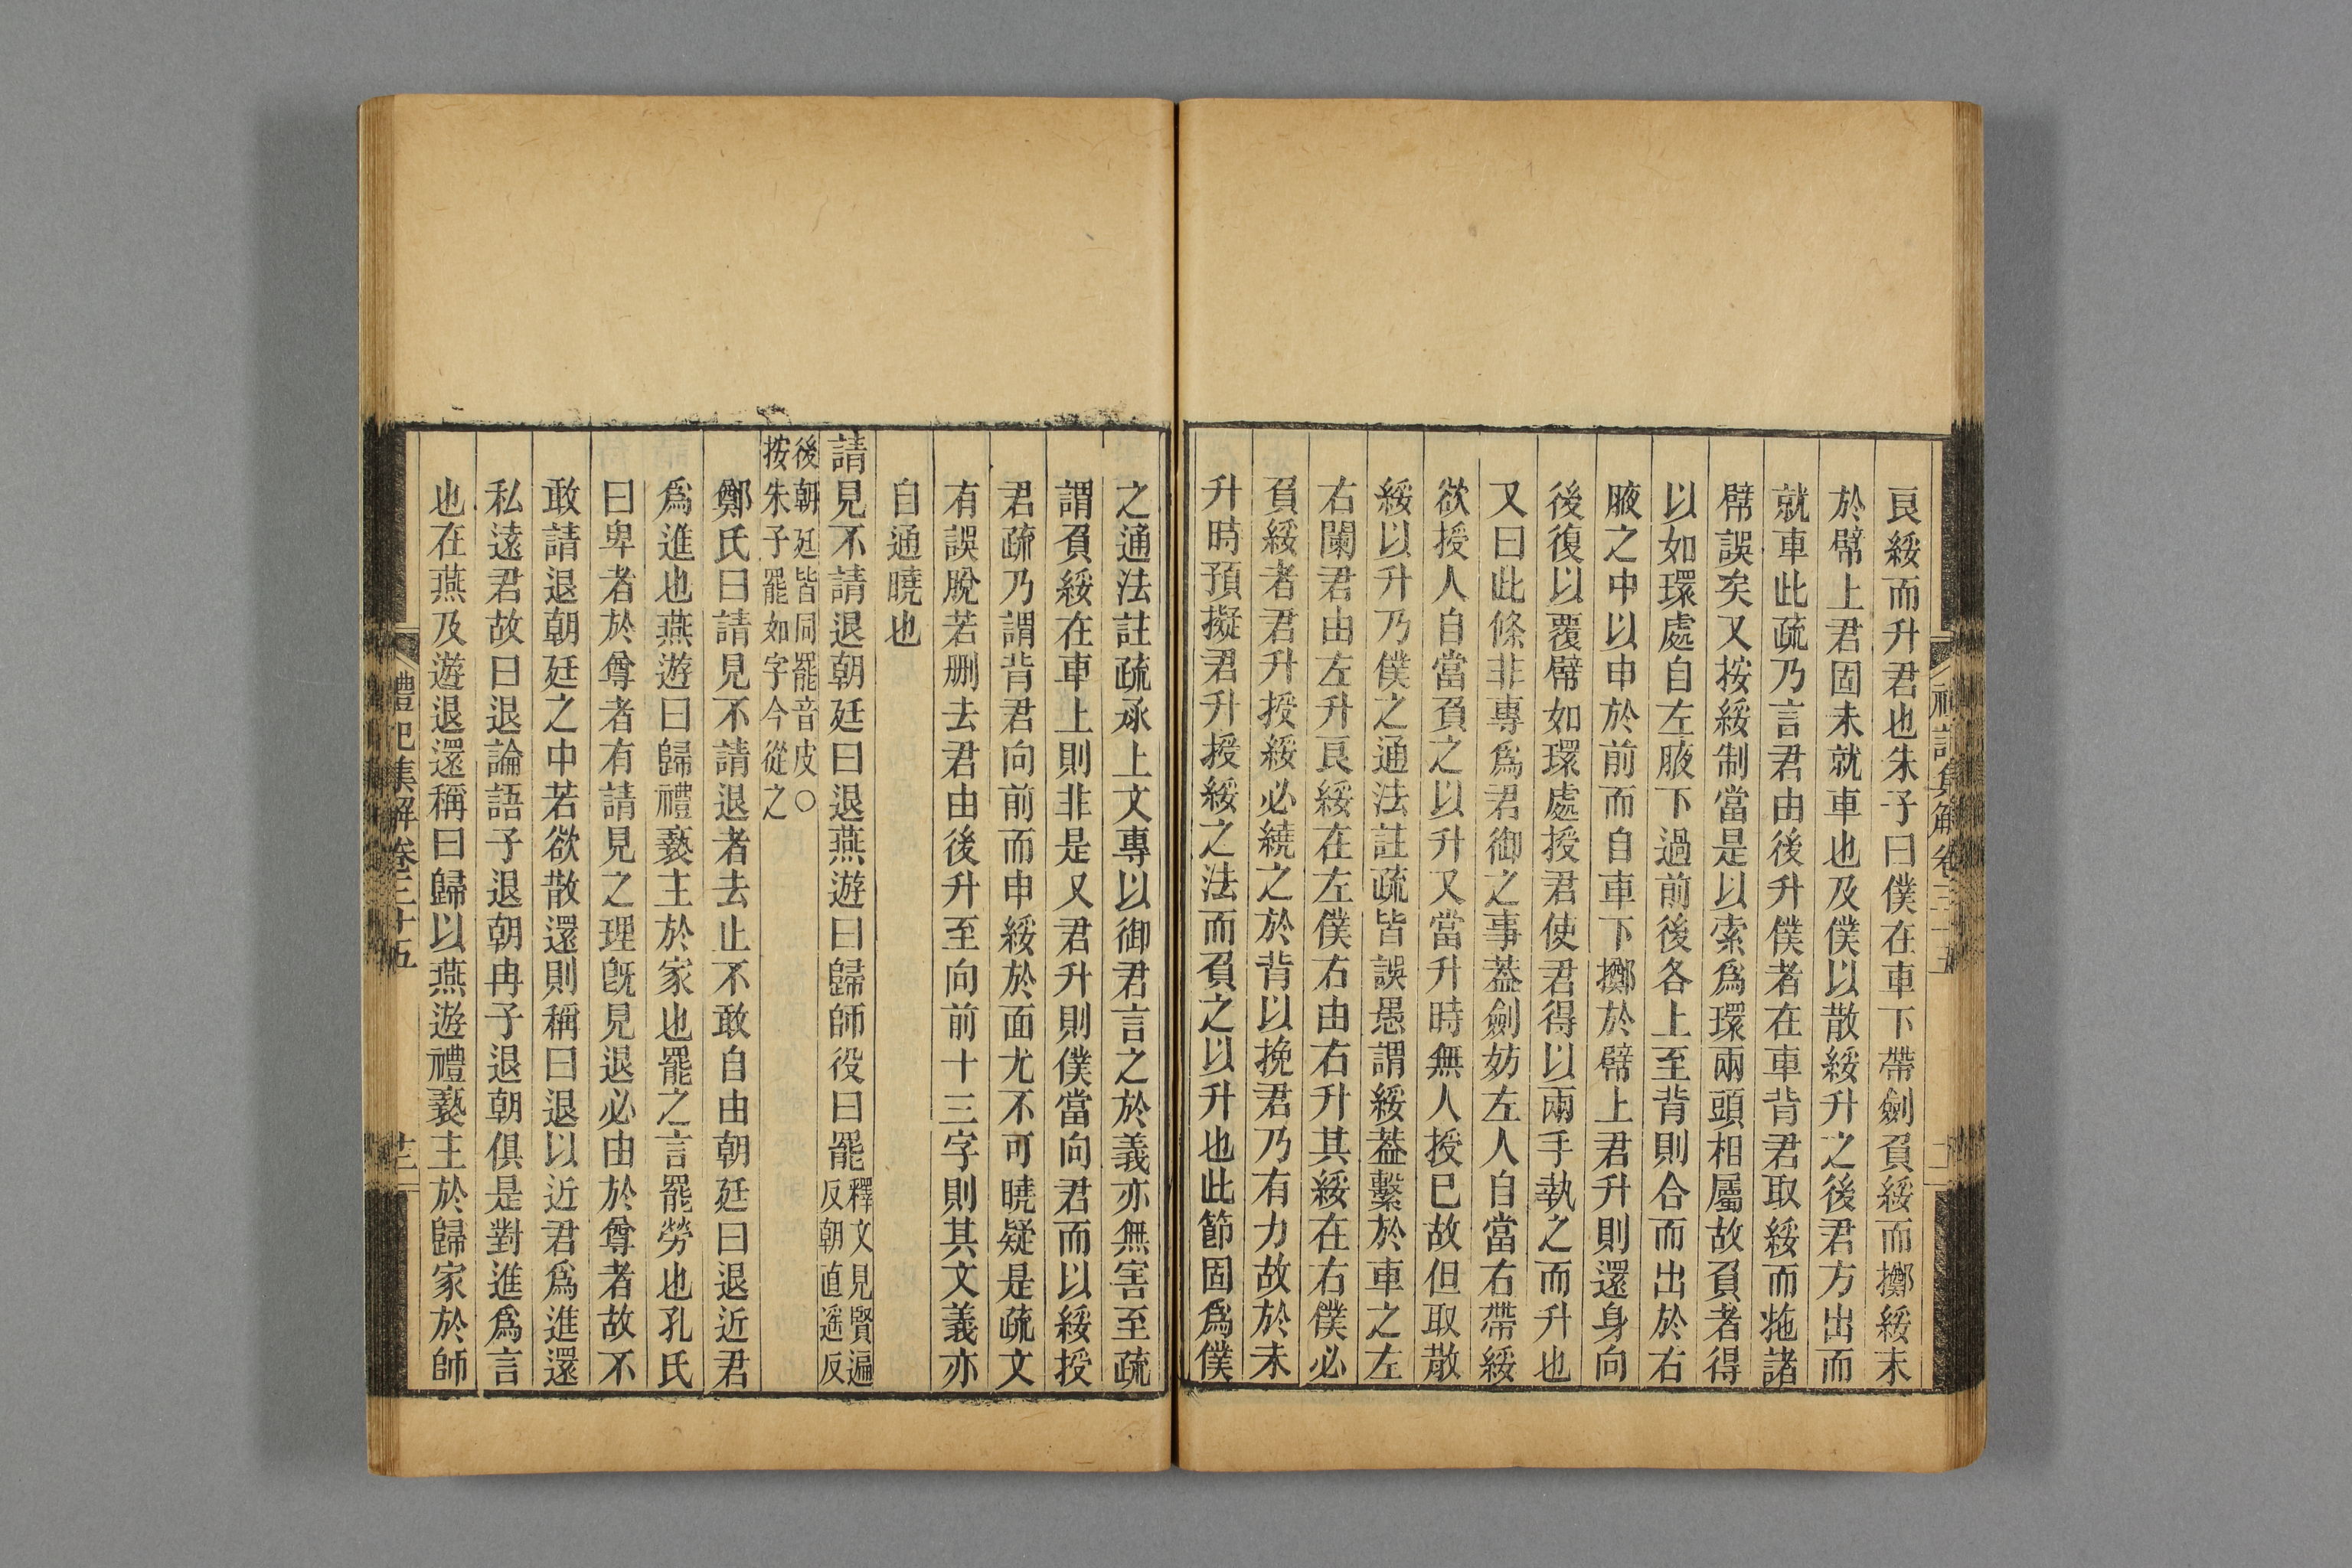 良綏而升君也朱子曰僕在車下帶劍負綏而擲綏末
於幦上君固未就車也及僕以散綏升之後君方出而
就車此疏乃言君由後升僕者在車背君取綏而拖諸
幦誤矣又按綏制當是以索爲環兩頭相屬故負者得
以如環處自左腋下過前後各上至背則合而出於右
腋之中以申於前而自車下擲於幦上君升則還身向
後復以覆幦如環處授君使君得以兩手執之而升也
又曰此條非專爲君御之事葢劍妨左人自當右帶綏
欲授人自當負之以升又當升時無人授已故但取散
綏以升乃僕之通法註疏皆誤愚謂綏葢繫於車之左
右闌君由左升良綏在左僕右由右升其綏在右僕必
負綏者君升授綏必繞之於背以挽君乃有力故於未
升時預擬君升授綏之法而負之以升也此節固爲僕
禮記集解卷三十五
之通法註疏承上文專以御君言之於義亦無害至疏
謂負綏在車上則非是又君升則僕當向君而以綏授
君疏乃謂背君向前而申綏於面尤不可曉疑是疏文
有誤脫若刪去君由後升至向前十三字則其文義亦
自通曉也
請見不請退朝廷曰退燕遊曰歸師役曰罷釋文見賢遍
反朝直遥反
後朝廷皆同罷音皮○
按朱子罷如字今從之
鄭氏曰請見不請退者去止不敢自由朝廷曰退近君
爲進也燕遊曰歸禮褻主於家也罷之言罷勞也孔氏
曰卑者於尊者有請見之理旣見退必由於尊者故不
敢請退朝廷之中若欲散還則稱曰退以近君爲進還
私遠君故曰退論語子退朝冉子退朝俱是對進爲言
也在燕及遊退還稱曰歸以燕遊禮褻主於歸家於師
禮記集解卷三十五